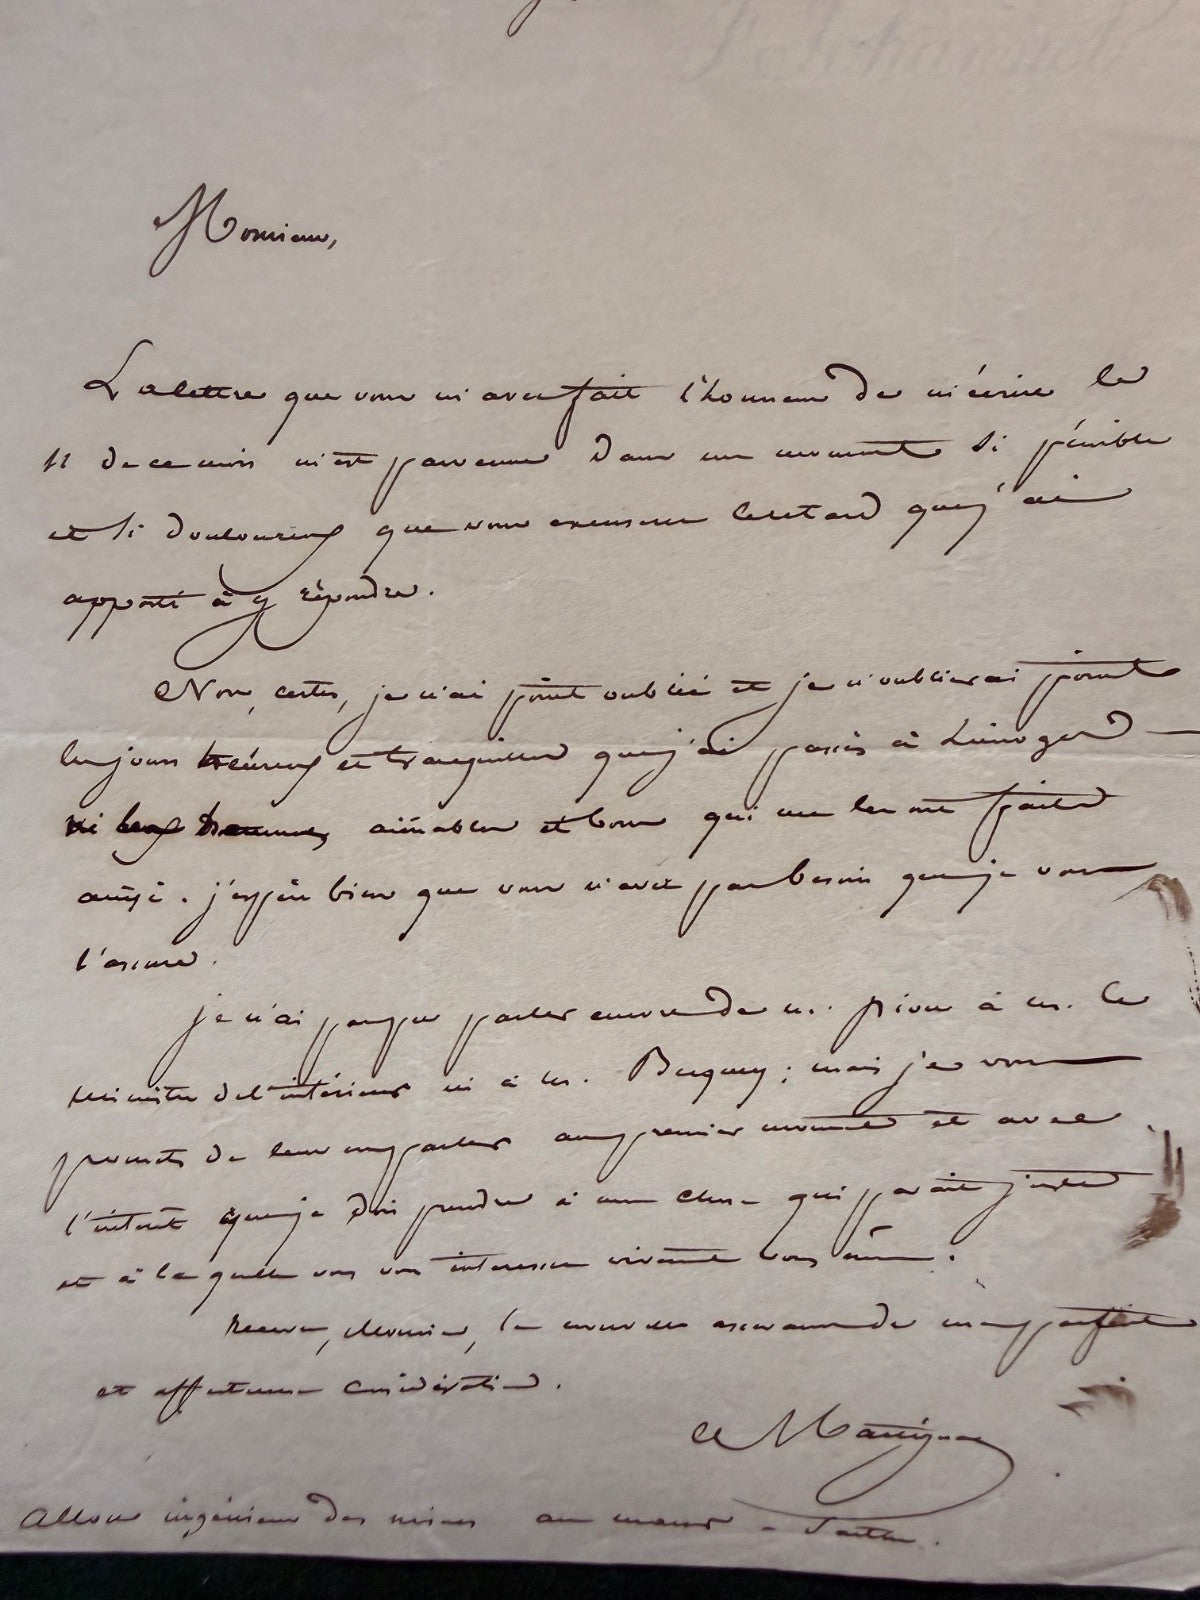 Monsieur,
La lettre que vous m'avez fait l'honneur de m'écrire le
11 de ce mois m'est parvenue dans un moment si pénible
et si douloureux que vous excuserez le retard que j'ai
apporté à y répondre.
Non, certes, je n'ai point oublié et je n'oublierai point
les jours heureux et tranquilles que j'ai passés à Limoges
ni les hommes aimables et bons qui me les ont faits
ainsi. j'espère bien que vous n'avez pas besoin que je vous
l'assure.
je n'ai pas pu parler encore de m. à m. le
ministre de l'intérieur ni à m. Becquey ; mais je vous
promets de leur en parler au premier moment et avec
l'intérêt que je dois prendre à une chose qui paraît juste
et à laquelle vous vous intéressez vivement vous même.
Recevez, Monsieur, la nouvelle assurance de ma parfaite
et affectueuse considération.
de Martignac
Allou ingénieur des mines au mans - Sarthe.